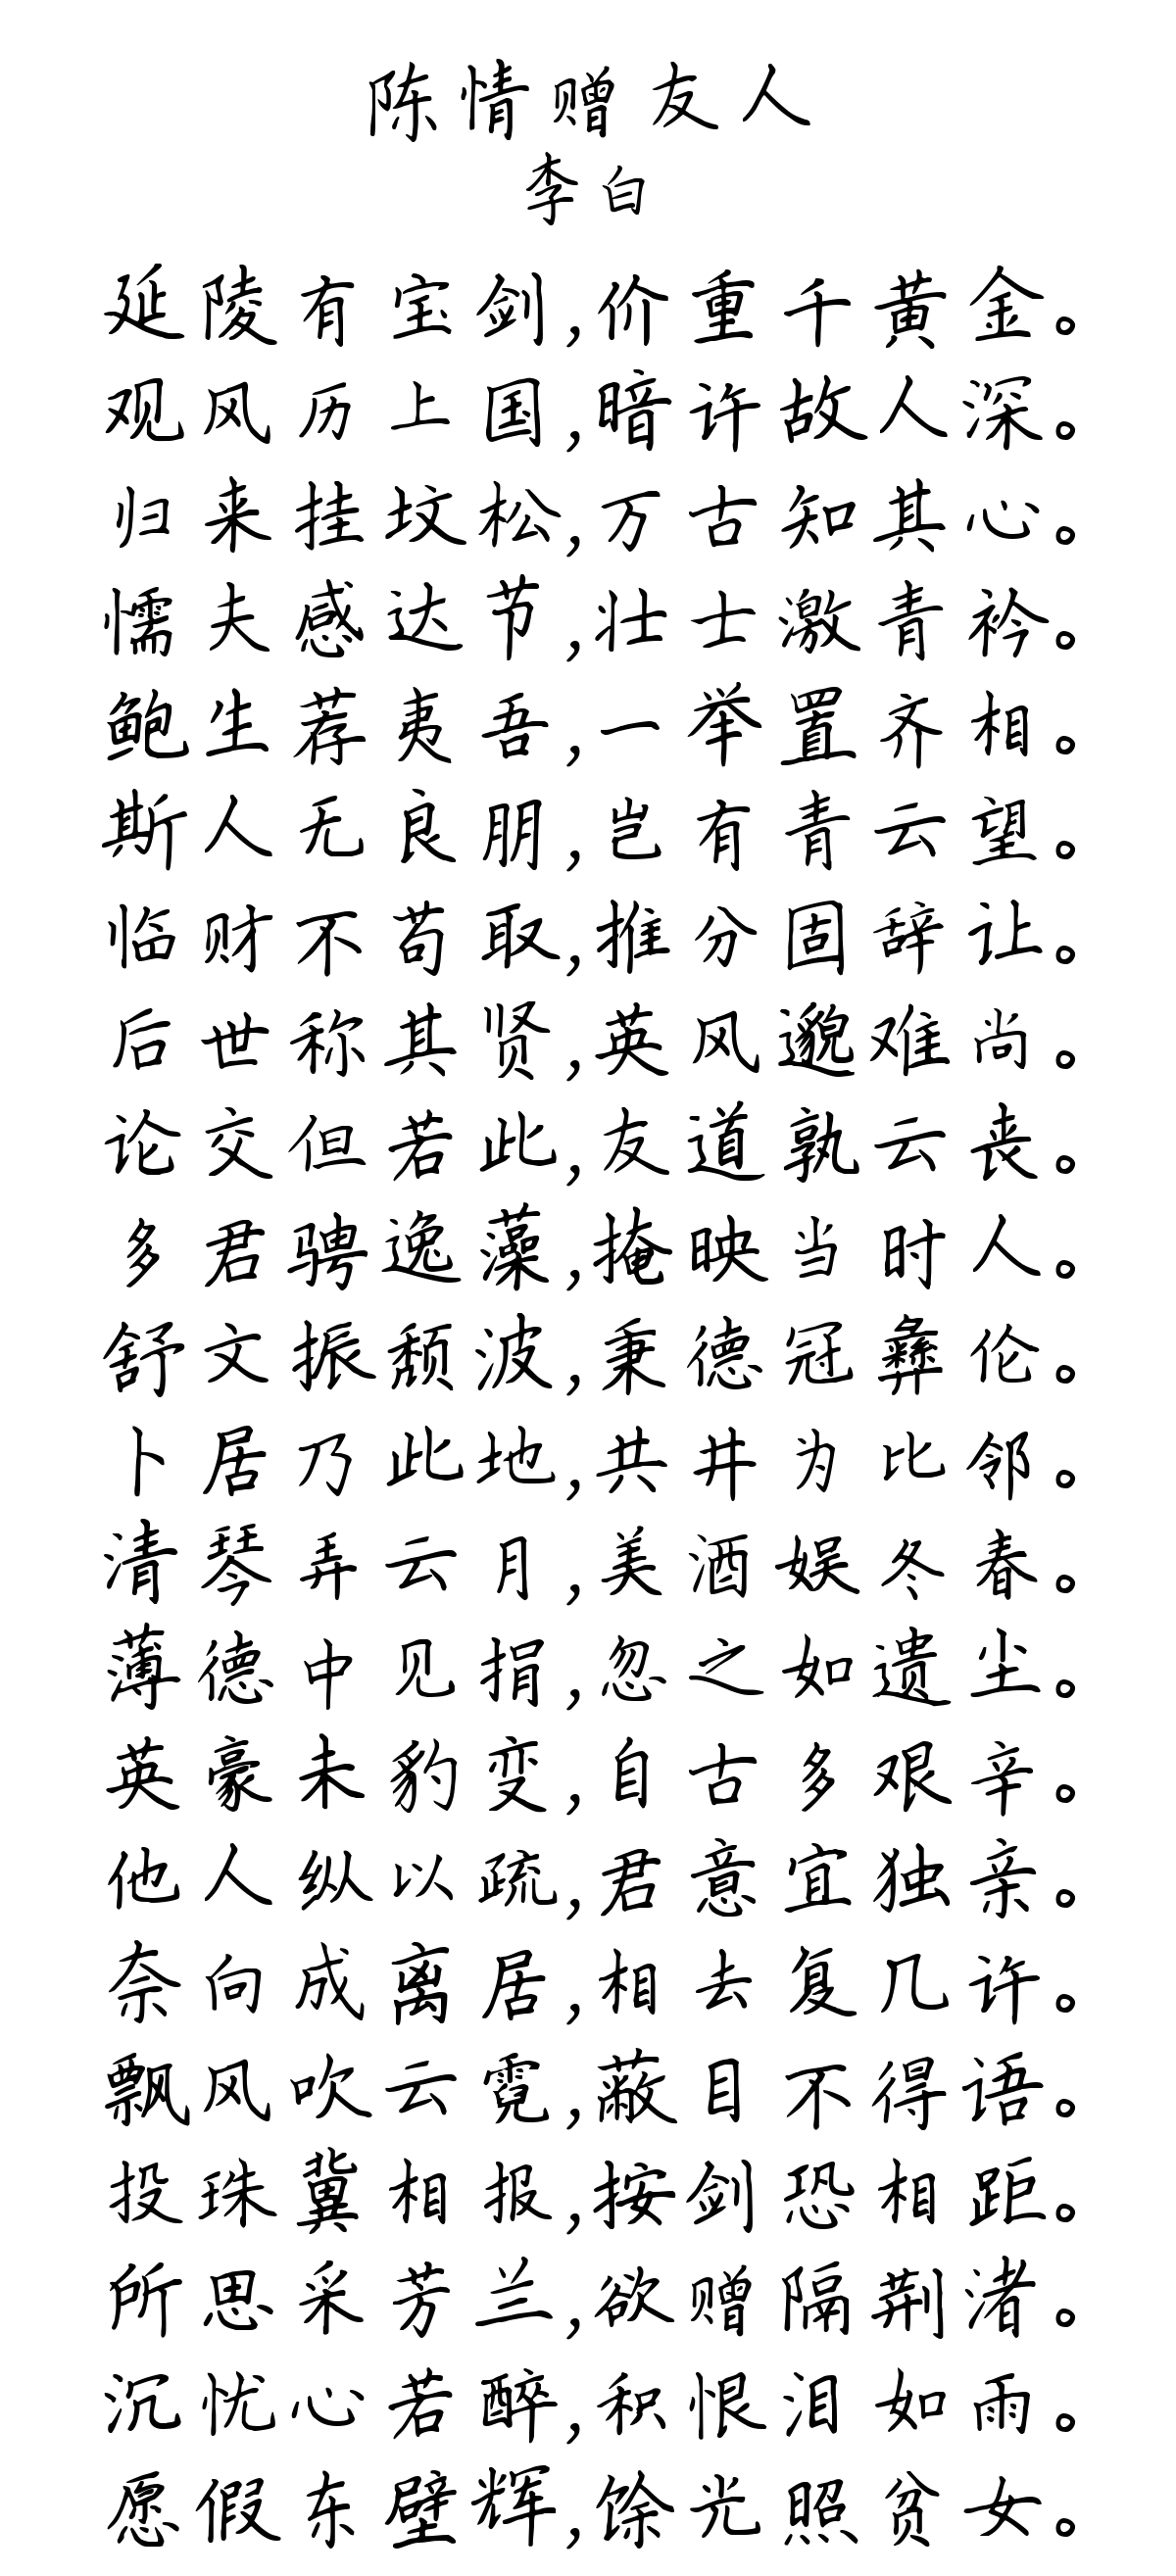 陈情赠友人
李白
延陵有宝剑,价重千黄金。
观风历上国,暗许故人深。
归来挂坟松,万古知其心。
懦夫感达节,壮士激青衿。
鲍生荐夷吾,一举置齐相。
斯人无良朋,岂有青云望。
临财不苟取,推分固辞让。
后世称其贤,英风邈难尚。
论交但若此,友道孰云丧。
多君骋逸藻,掩映当时人。
舒文振颓波,秉德冠彝伦。
卜居乃此地,共井为比邻。
清琴弄云月,美酒娱冬春。
薄德中见捐,忽之如遗尘。
英豪未豹变,自古多艰辛。
他人纵以疏,君意宜独亲。
奈向成离居,相去复几许。
飘风吹云霓,蔽目不得语。
投珠冀相报,按剑恐相距。
所思采芳兰,欲赠隔荆渚。
沉忧心若醉,积恨泪如雨。
愿假东壁辉,馀光照贫女。